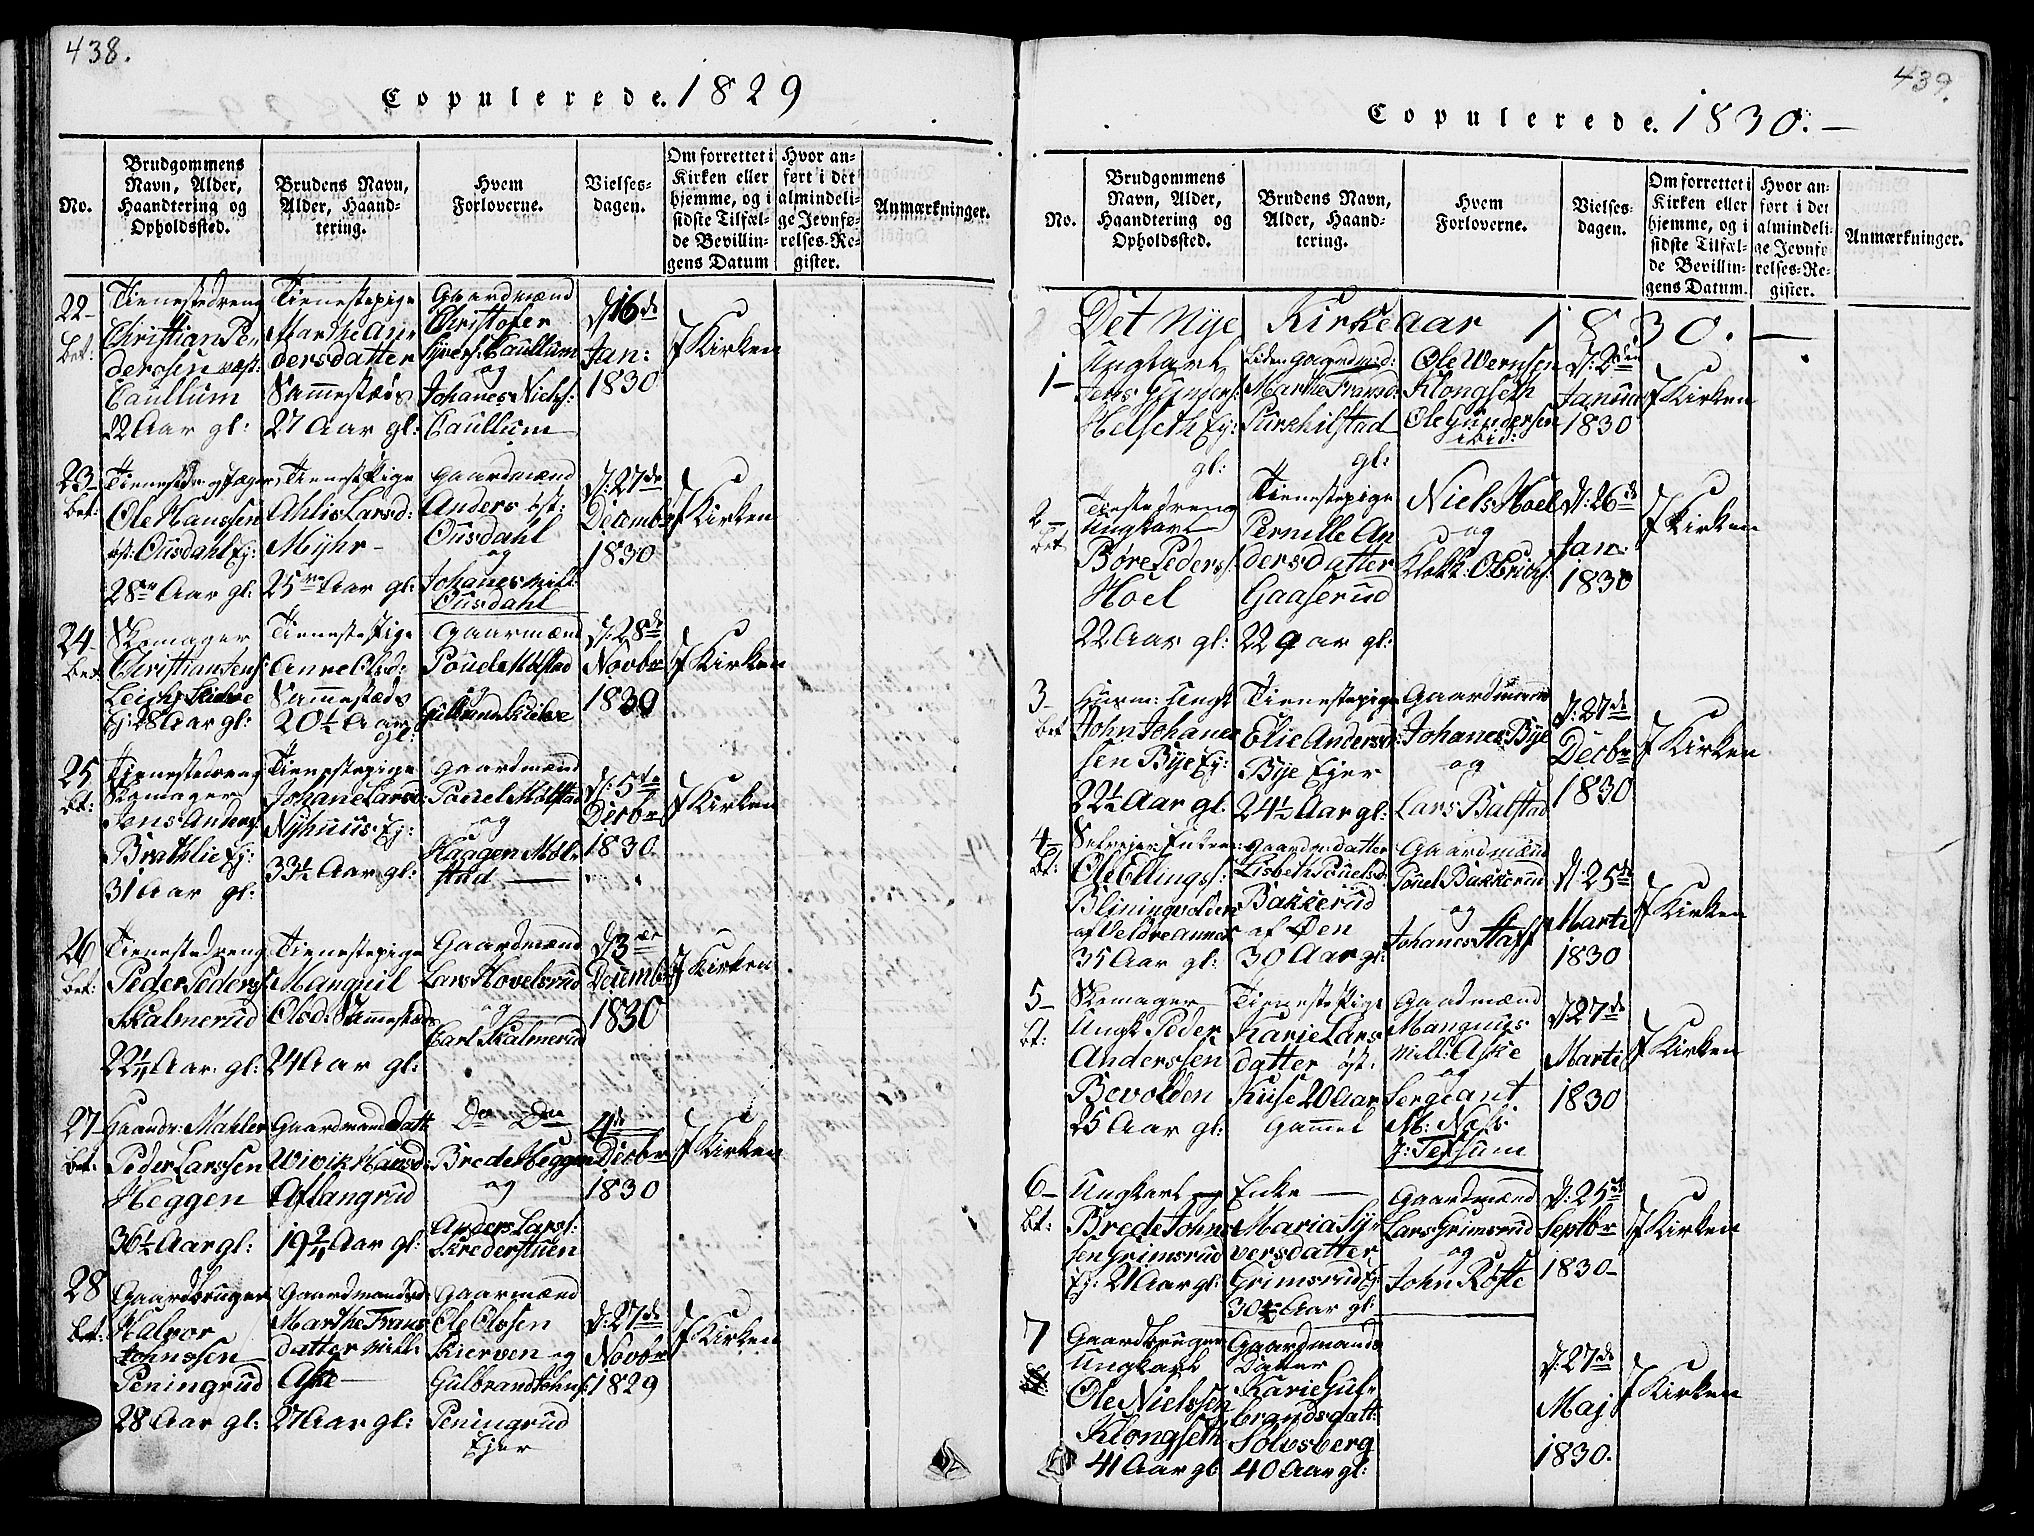 438.
Copulerede. 1829
No.
Brudgommens
Navn, Alder,
Haandtering og
Opholdssted.
Brudens Navn,
Alder, Haand-
tering.
Hvem
Forloverne.
Vielses-
dagen.
Om forrettet i
Kirken eller
hjemme, og i
sidste Tilfæl-
de Bevillin-
gens Datum
Hvor an-
ført i det
almindeli-
ge Jevnfø-
relses-Re-
gister.
Anmærkninger.
22-
bet:
Tienestedreng
Christian Pe-
derssen væst:
Caullum
22 Aar gl:
Tienestepige
Marthe An-
dersdatter
Sammestæds
27 Aar gl:
Gaardmænd
Christofer
Syvers: Caullum
og
Johanes Niels:
Caullum
d: 16de
Jan:
1830
I Kirken
23-
bet:
Ole Hanssen
øst: Ousdahl Ej:
28 Aar gl:
Tieneste Pige
Ahlis Larsd:
Myhr-
25 Aar gl:
Gaardmænd
Anders øst:
Ousdahl
og
Johanes mell:
Ousdahl
d: 27de
Decemb
1830
I Kirken
24-
bet
Skomager
Christian Jens:
Skicke
Ej: 28 Aar gl:
Tieneste Pige
Anne Olsd:
Sammestæds
20½ Aar
gl:
Gaarmænd
Pouel Molstad
og
Gulbrand Skicke
d: 28de
Novbr
1830
I Kirken
25
bt:
Tienestedreng
Skomager
Jens Anders:
Brathlie Ej:
31 Aar gl:
Tienestepige
Johane Larsd:
Nyhuus Ej:
33½ Aar gl:
Gaardmænd
Pouel Molstad
og
Haagen Mol-
stad
d: 5te
Decbr
1830
I Kirken
26
bet:
Tienestedreng
Peder Peders:
Skalmerud
22½ Aar gl:
Tienestepige
Manguil
Olsd: Sammestæds
24 Aar gl:
Gaardmænd
Lars Hovelsrud
og
Carl Skalmerud
d: 3
Decemb
1830
I Kirken
27-
bet:
Haandv: Mahler
Peder Larssen
Heggen
36½ Aar gl:
Gaardmand Datt
Wivik Hansd:
Aflangrud
19¾ Aar gl:
Do Do
Brede Heggen
og
Anders Lars:
Skrederstuen
4de
Decbr
1830
I Kirken
28
bet:
Gaardbruger
Halvor
Johnssen
Peningrud
28 Aar gl:
Gaardmandsd
Marthe Frans
datter mell:
Aske
27 Aar gl:
Gaarmænd
Ole Olssen
Skierven og
Gulbrand Johns:
Peningrud
Ejer
d: 27de
Novbr
1829
I Kirken
439.
Copulerede. 1830.-
No.
Brudgommens
Navn, Alder,
Haandtering og
Opholdssted.
Brudens Navn,
Alder, Haand-
tering.
Hvem
Forloverne.
Vielses-
dagen.
Om forrettet i
Kirken eller
hjemme, og i
sidste Tilfæl-
de Bevillin-
gens Datum.
Hvor an-
ført i det
almindeli-
ge Jevnfø-
relses-Re-
gister.
Anmærkninger.
Det Nye Kirkeaar 1830.-
1-
Ungkarl
Helseth Ej:
gl:
Marthe Fransd:
gl:
Ole Wernsen
Klongseth
Ole Gundersen
ibid:
d: 2den
Janua
1830
I Kirken
2-
bet
Tienestedreng
Ungkarl
Børe Peders:
Hoel
22 Aar gl:
Tienestepige
Pernille An
dersdatter
Gaaserud
22 Aar gl:
Niels Hoel
og
Klokk:
d: 26de
Jan:
1830
I Kirken
3-
bet
Ungk
John Johanes
sen Bye Ej:
22½ Aar gl:
Tienestepige
Elie Andersd:
Bye Ejer
24½ Aar gl:
Gaardmænd
Johanes Bye
og
Lars Balstad
d: 27de
Decbr
1830
I Kirken
4-
bt:
Selvejer Enkem:
Ole Ellings:
af Veldre Annex
35 Aar gl:
Gaardm: datter
Lisbeth Pouelsd:
Bakkerud
af Den
30 Aar gl:
Gaardmænd
Pouel Bakkerud
og
Johanes Staff
d: 25de
Marti
1830
I Kirken
5-
bt:
Skomager
Ungk Peder
Anderssen
Bevolden
25 Aar gl:
Tieneste Pige
Karie Lars
datter øst:
Kuse 20 Aar
Gammel
Gaardmænd
Manguus
mell: Aske
og
Sergeant
M: Nøs:
p: Texsum
d: 27de
Marti
1830
I Kirken
6-
bt:
Ungkarl
Brede Johns
sen Grimsrud
Ej: 21 Aar gl:
Enke
Maria Sy-
versdatter
Grimsrud Ej:
30½ Aar gl:
Gaardmænd
Lars Grimsrud
og
John Røste
d: 25de
Septbr
1830-
I Kirken
7
Gaardbruger
Ungkarl
Ole Nielssen
Klongseth
41 Aar gl
Gaardmands
Datter
Karie Gul-
brandsdatt:
Solvsberg
40 Aar gl:
d: 27de
Maj
1830.
I Kirken